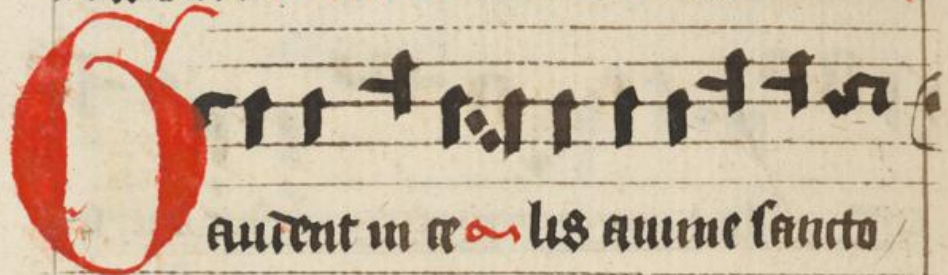 Gaudent in ce lis anime sancto